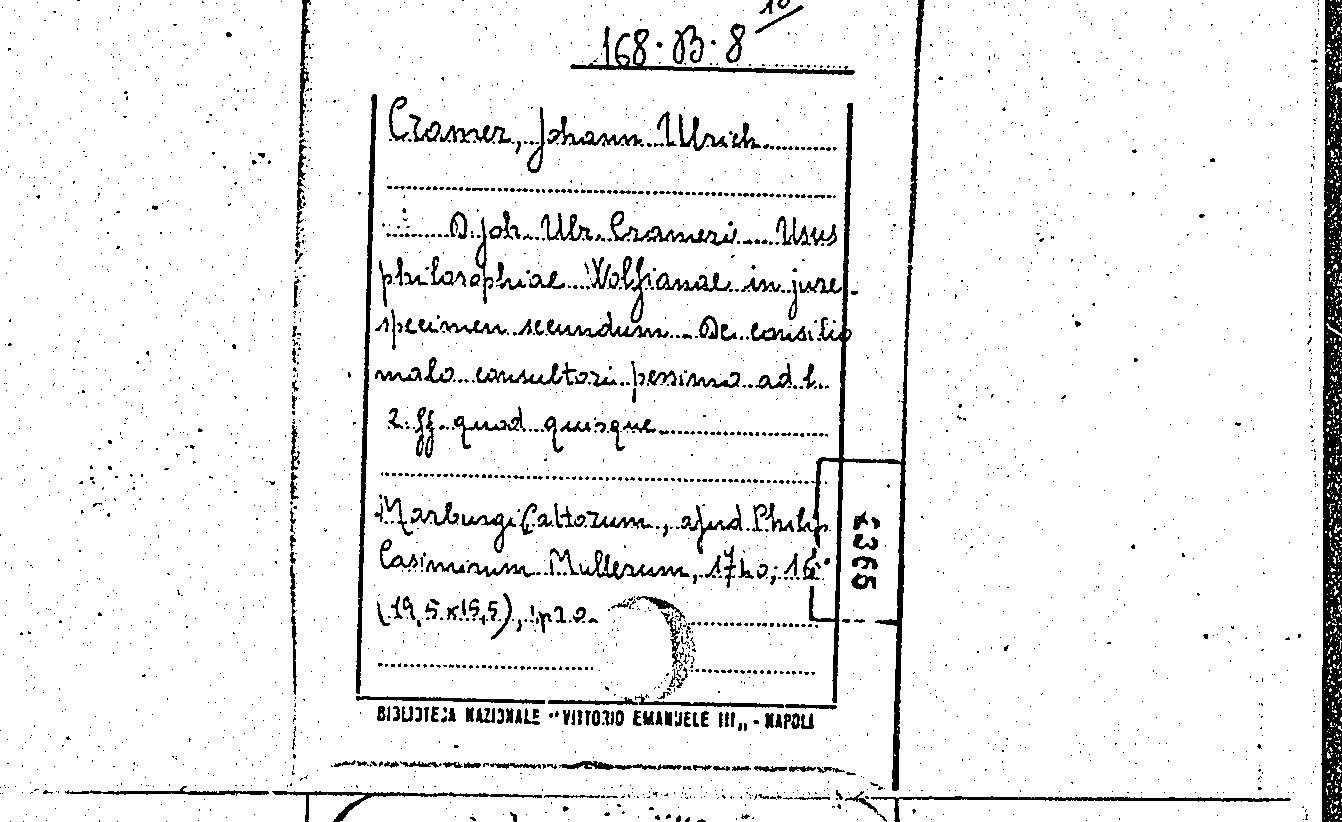 168.B.8 10/
Cramer, Johann Ulrich
D. Joh. Ulr. Crameri Usus
philosophiae Wolfianae in jure.
specimen secundum De consilio
malo consultori pessimo ad l.
2 ff. quod quisque
Marburgi Cattorum, apud Philip
Casimirum Mullerum, 1740; 16°
(19,5x15,5), p 20.
2365
BIBLIOTECA NAZIONALE "VITTORIO EMANUELE III„ - NAPOLI